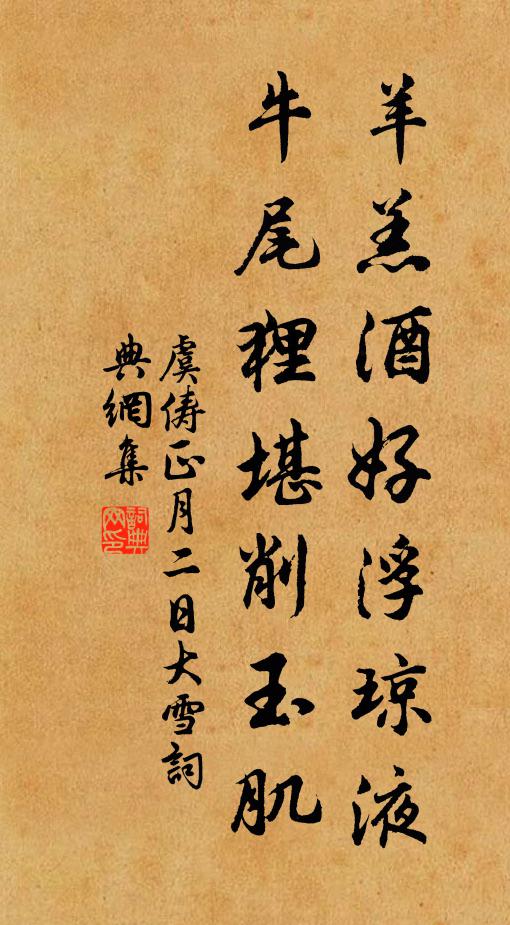 羊羔酒好浮琼液
牛尾狸堪削玉肌
虞俦正月二日大雪詞
典網集
詞典網印